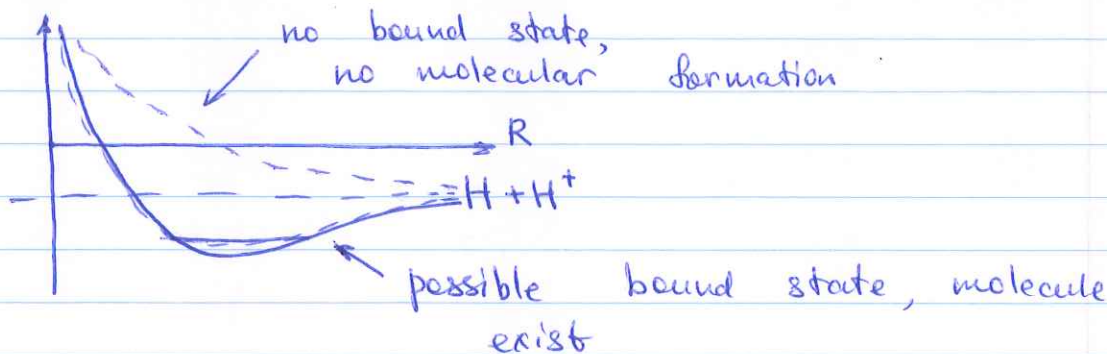 no bound state,
no molecular formation
R
H + H⁺
possible bound state, molecule
exist